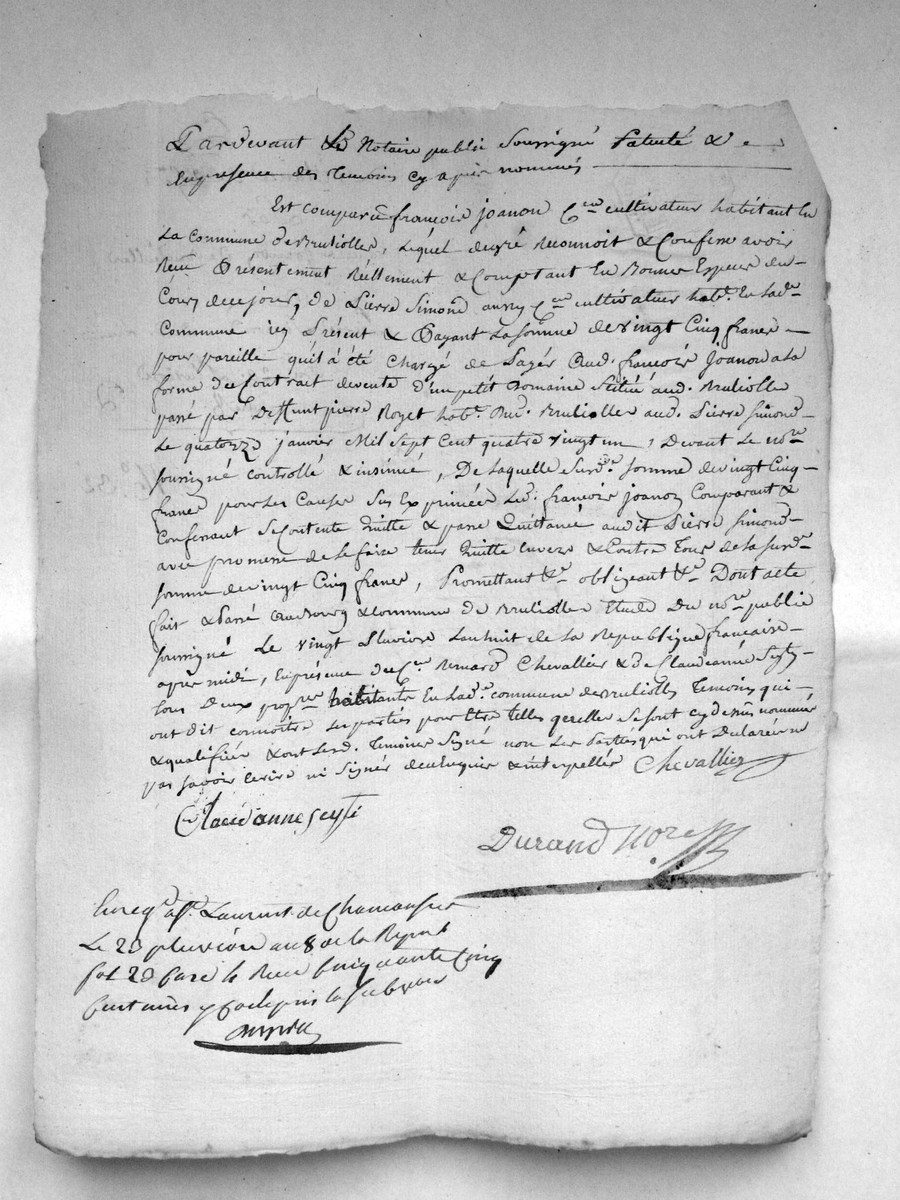 Pardevant Le Notaire public Soussigné Patenté &
En presence des Temoins cy apres nommés
Est comparu françois joanon C.en cultivateur habitant En
La Commune de Brulioller, Lequel de gré Reconnoit & Confesse avoir
Reçu Présentement Réellement & Comptant En Bonnes Especes du
Cours de ce jour, de Pierre Simond aussy C.en cultivateur hab.t En lad.e
Commune icy Présent & Payant La somme de vingt Cinq francs
pour pareille qu'il à été Chargé de Payer Aud. françois joanon a La
forme du Contrait de vente d'un petit Domaine Situé aud. Brulliolle
passé par Deffunt pierre Royet hab.t Aud. Brulioller aud. Pierre Simond
Le quatorze janvier Mil Sept Cent quatre vingt un, Devant Le no.re
soussigné controllé & insinué, De Laquelle Surd.e somme de vingt Cinq
francs pour Les Causes Sus Exprimées Led. françois joanon Comparant &
Confessant Se Contente quitte & passe Quittance audit Pierre Simond
avec promesse de Le faire tenir Quitte envers & Contre Tous de la surd.e
somme de vingt Cinq francs, Promettant &.a obligeant &.a Dont acte
fait & Passé Au Bourg & Commune de Brulliolle Etude Du no.re public
soussigné Le vingt Pluviose L'an huit de La Republique française
apres midi, En présence du C.en Benard Chevallier & de Claude anne Seyti
tous deux prop.res habitants En Lad.e commune de Brulliolle Temoins qui
ont dit connoitre Les parties pour Etre telles qu'elles Se sont cy dessus nommées
& qualifiées & ont Lesd. Temoins Signé non Les Parties qui ont Declaré ne
pas Savoir Ecrire ni Signer de ce Enquis & interpellés Chevallier
Claude anne seyti
Durand No.re
Enreg.é à S.t Laurent de Chamousset
Le 23 pluviose an 8 de la Repub
fol 20 Case 4 Reçu Cinquante Cinq
Centimes y Compris la subvon